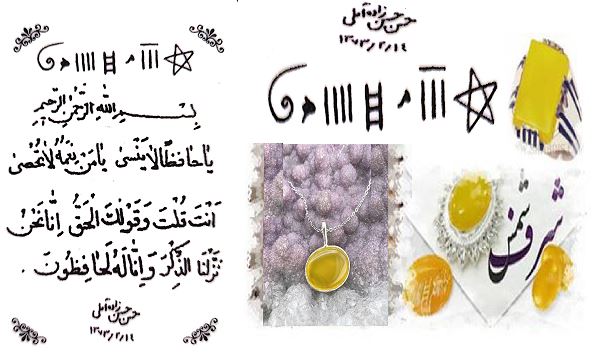 بِسْمِ اللهِ الرَّحْمٰنِ الرَّحیمِ
یا حافِظًا لا یَنْسیٰ یا مَنْ نِعَمُهُ لا تُحْصیٰ
اَنْتَ قُلْتَ وَقَوْلُكَ الْحَقُّ اِنّا نَحْنُ
نَزَّلْنَا الذِّكْرَ وَاِنّا لَهُ لَحافِظُونَ.
حسن حسن زاده آملی
۱۳۷۳/۲/۱۴
حسن حسن زاده آملی
۱۳۷۳/۲/۱۴
شرف شمس